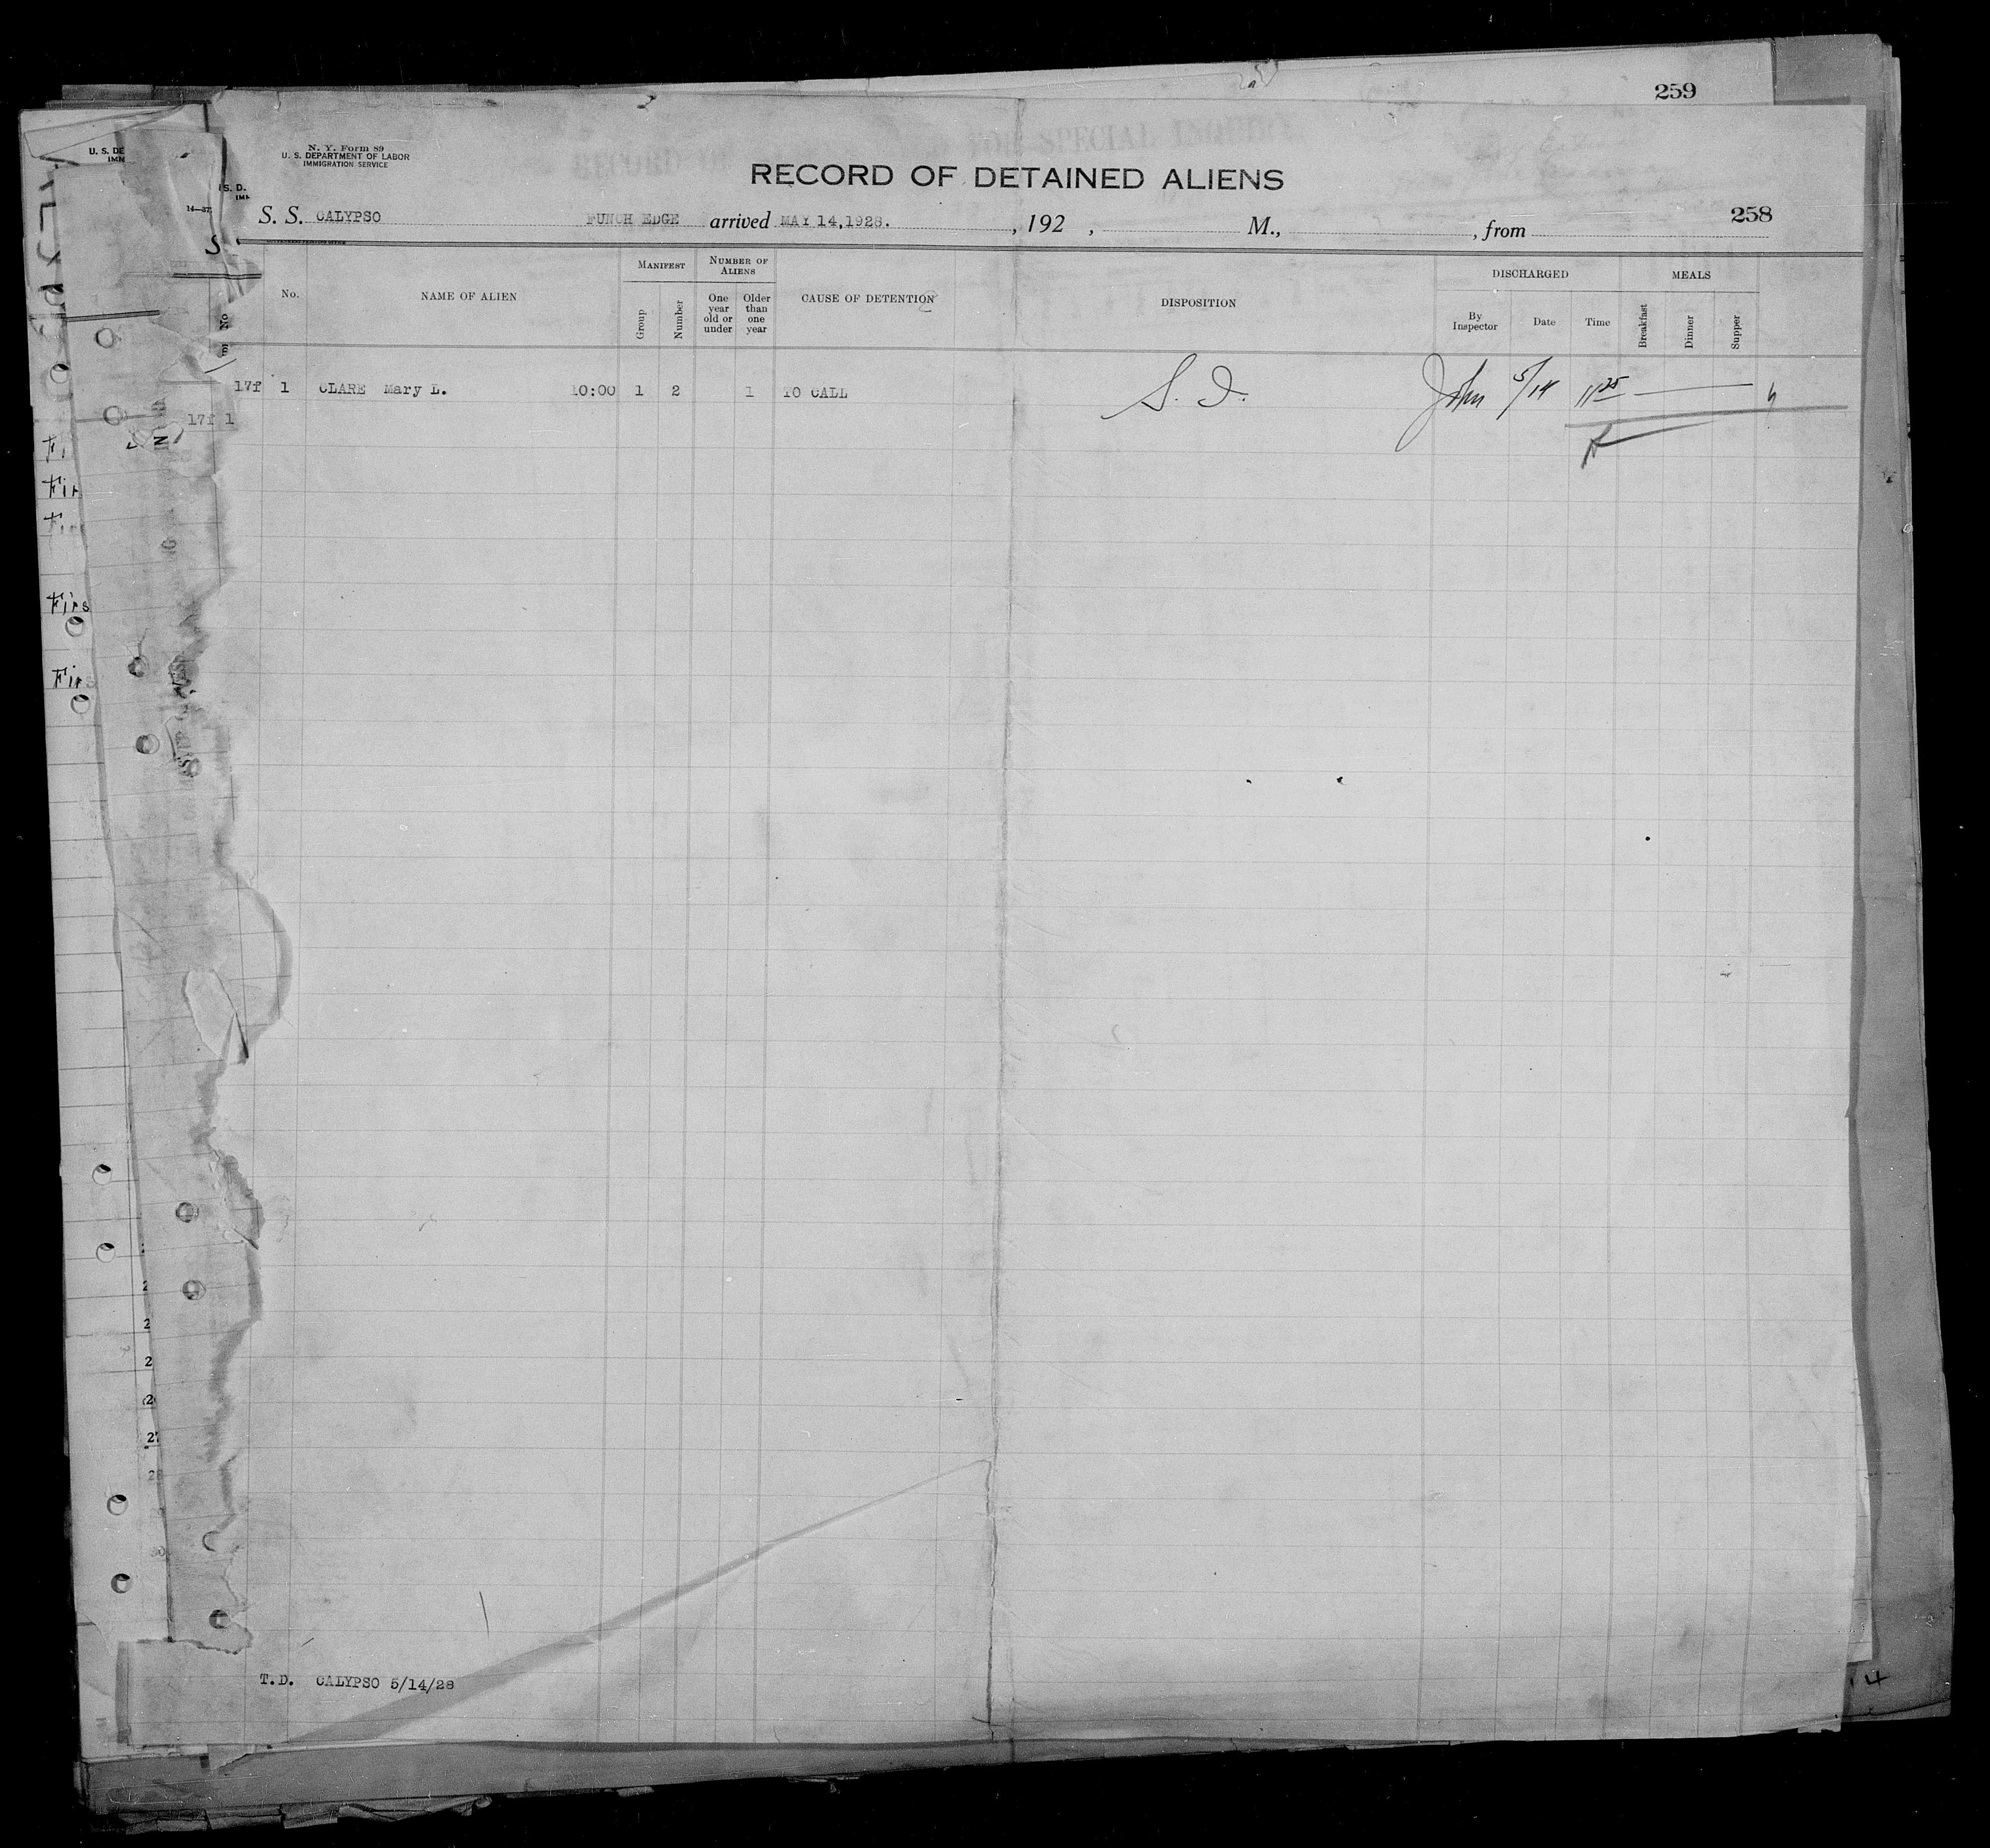 259
N. Y. Form 89
U. S. DEPARTMENT OF LABOR
IMMIGRATION SERVICE
RECORD OF DETAINED ALIENS
258
S. S. CALYPSO FUNCH EDGE arrived MAY 14,1928. , 192 , M., , from
No. NAME OF ALIEN MANIFEST NUMBER OF ALIENS CAUSE OF DETENTION DISPOSITION DISCHARGED MEALS
Group Number One year old or under Older than one year By Inspector Date Time Breakfast Dinner Supper
17f 1 CLARE Mary L. 10:00 1 2 1 TO CALL S. I. John 5/14 11 25
17f 1
Fir
Firs
Firs
T.D. CALYPSO 5/14/28
14